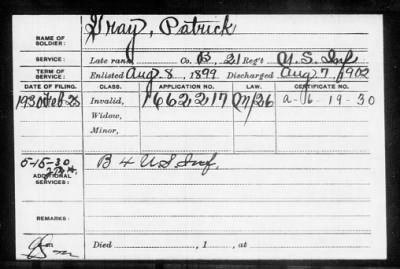 Gray, Patrick
NAME OF SOLDIER:
SERVICE: Late rank Co. B, 21 Reg't U.S. Inf
TERM OF SERVICE: Enlisted Aug. 8, 1899 Discharged Aug 7, 1902
DATE OF FILING. CLASS. APPLICATION NO. LAW. CERTIFICATE NO.
1930 Feb 28 Invalid, 1662217 a-6-19-30
Widow,
Minor,
5-15-30 B 4 U.S. Inf.
ADDITIONAL SERVICES:
REMARKS:
Died , 1 , at